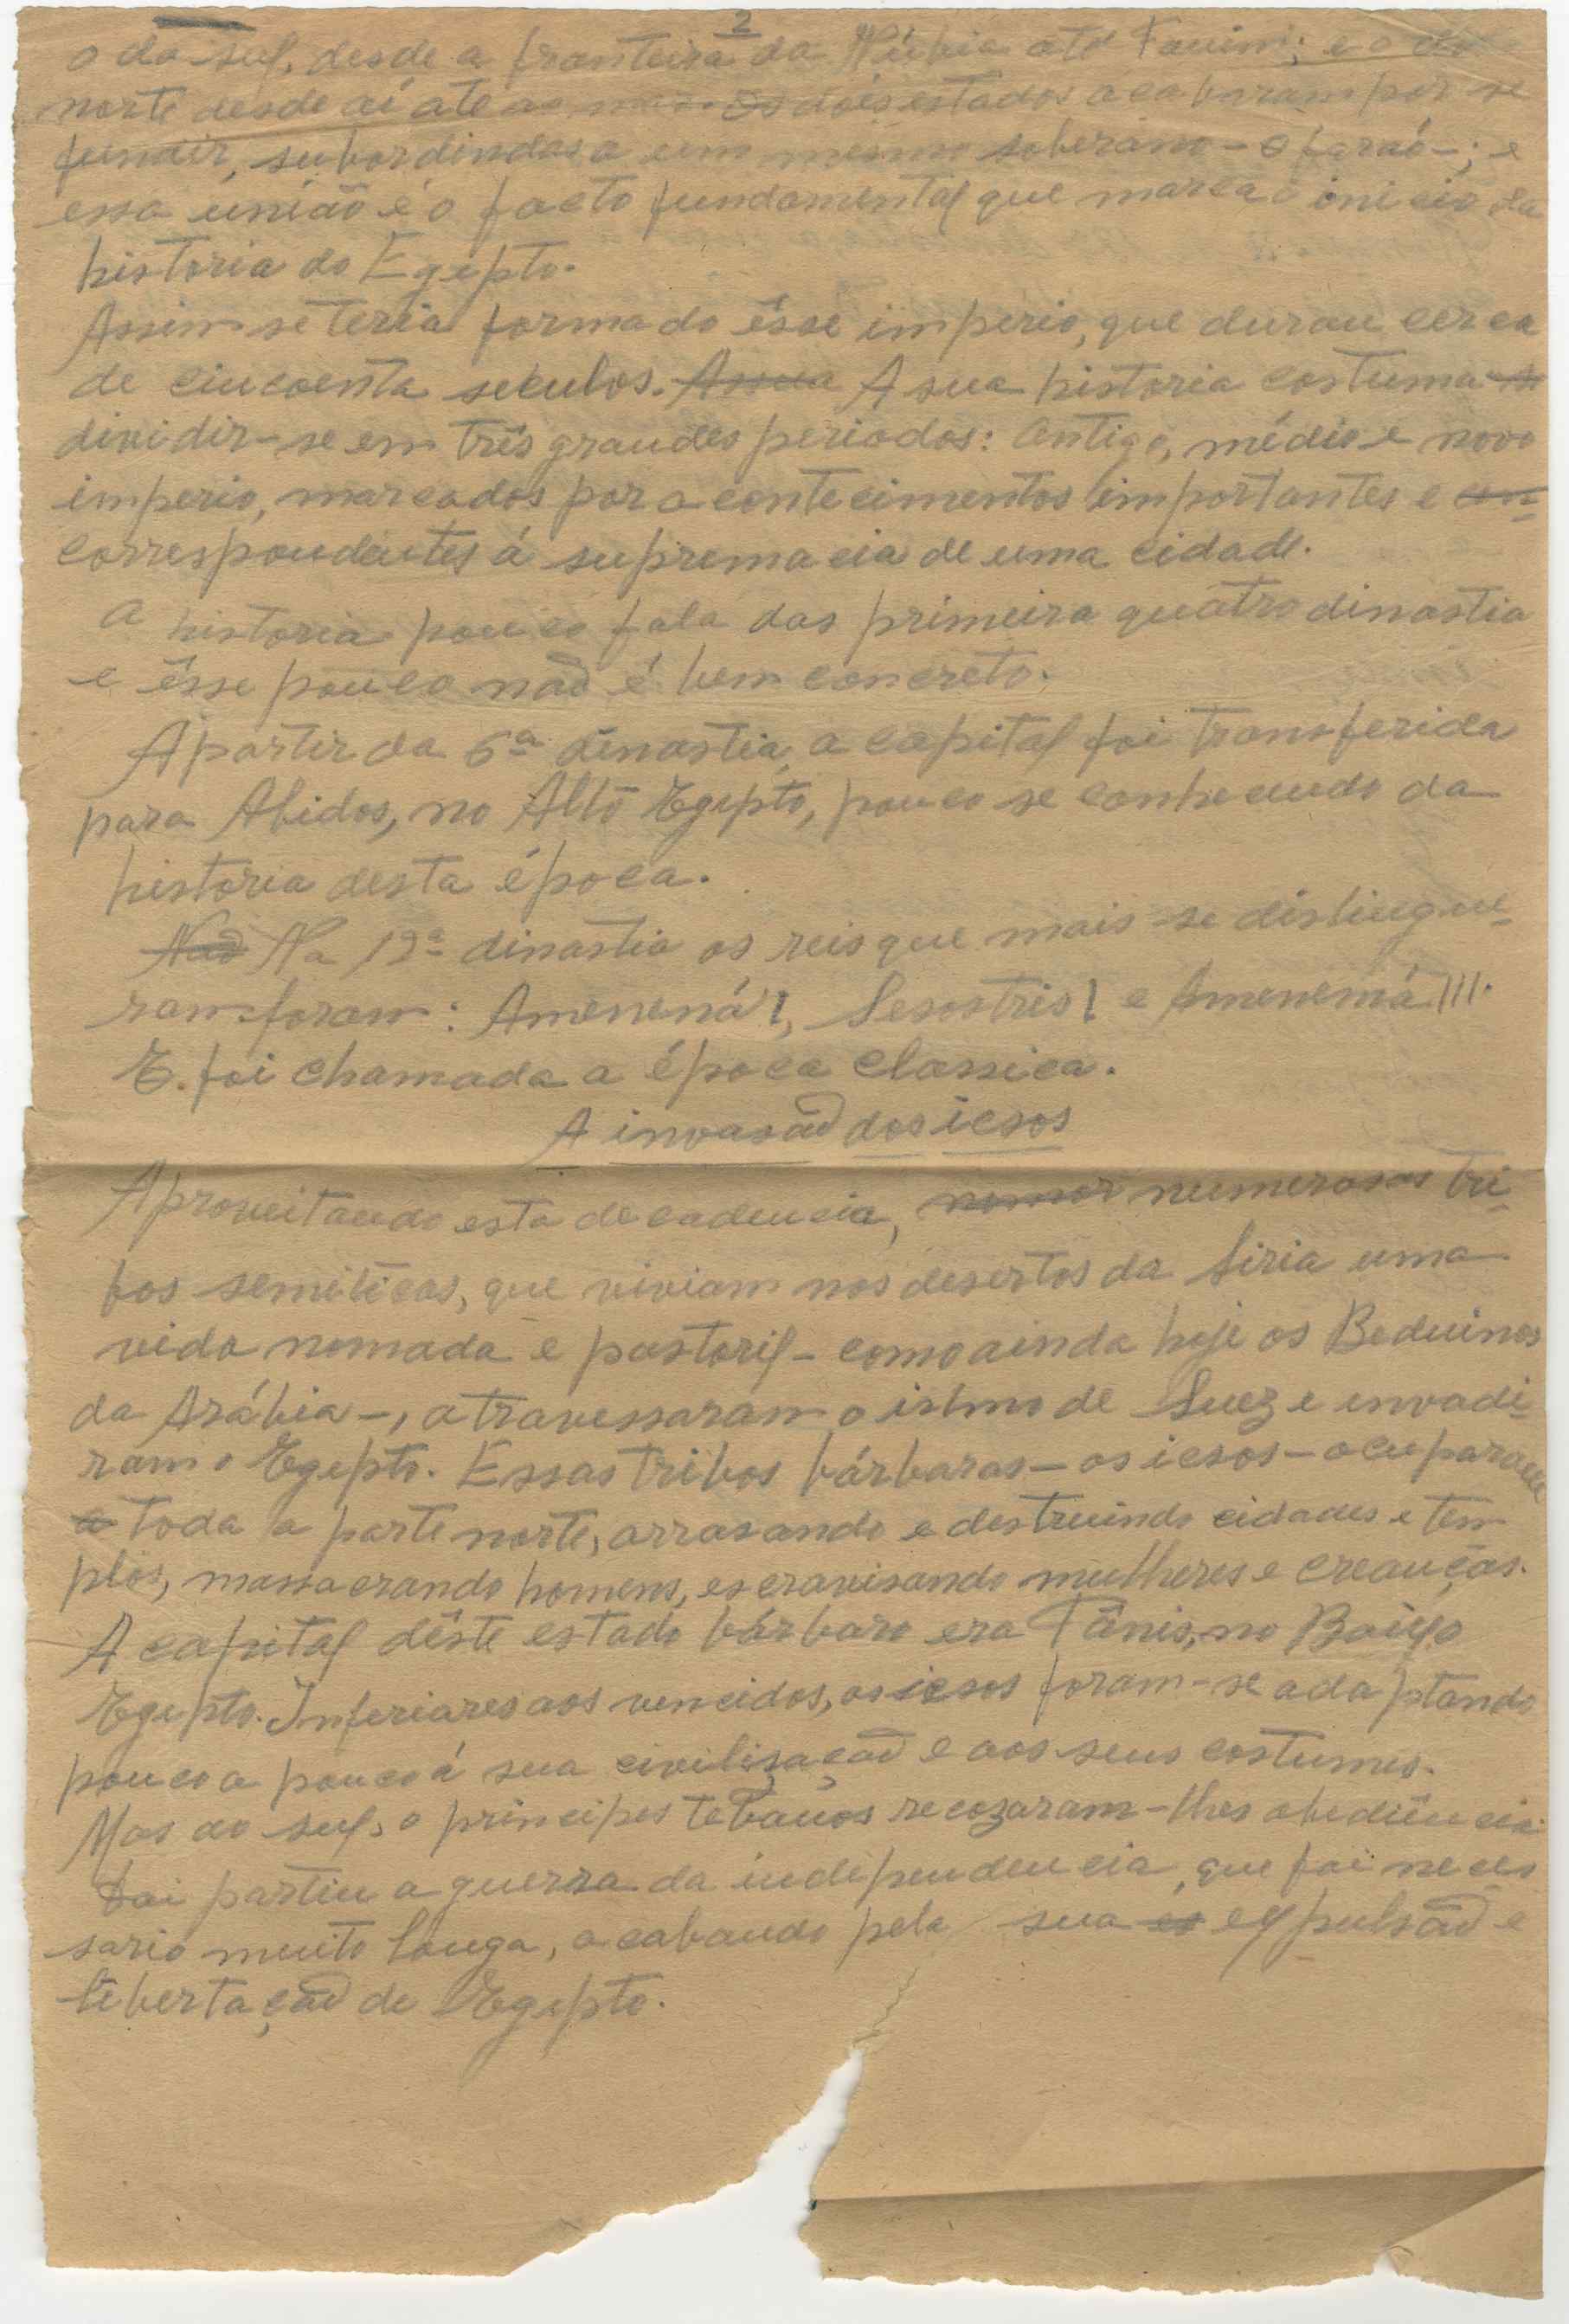 2
o do sul, desde a fronteira da Núbia até Faium; e o do
norte desde aí até ao mar. Os dois estados acabaram por se
fundir, subordindos a um mesmo soberano - o faraó -; e
essa união é o facto fundamental que marca o inicio da
historia do Egipto.
Assim se teria formado êsse imperio, que durou cerca
de cincoenta seculos. Assua A sua historia costuma se
dividir-se em três grandes periodos: Antigo, médio e novo
imperio, marcados por acontecimentos importantes e con-
correspondentes á supremacia de uma cidade.
A historia pouco fala das primeira quatro dinastia
e êsse pouco não é bem concreto.
A partir da 6ª dinastia, a capital foi transferida
para Abidos, no Alto Egipto, pouco se conhecendo da
historia desta época.
Não Na 12ª dinastia os reis que mais se distingue-
ram foram: Amenená I, Sesostris I e Amenemá III.
E. foi chamada a época classica.
A invasão dos icsos
Aproveitando esta decadencia, numerosas tri-
bos semiticas, que viviam nos desertos da Siria uma
vida nomada e pastoril - como ainda hoje os Beduinos
da Arábia -, atravessaram o istmo de Suez e invadi-
ram o Egipto. Essas tribos bárbaras - os icsos - ocuparam
a toda a parte norte, arrasando e destruindo cidades e tem
plos, massacrando homens, escravisando mulheres e creanças.
A capital dêste estado bárbaro era Tânis, no Baixo
Egipto. Inferiares aos vencidos, os icsos foram-se adaptando
pouco a pouco á sua civilisação e aos seus costumes.
Mas ao sul, o principes tebanos recozaram-lhes obediência.
Dai partiu a guerra da independencia, que foi neces
sario muito longa, acabando pela sua es expulsão e
libertação de Egipto.